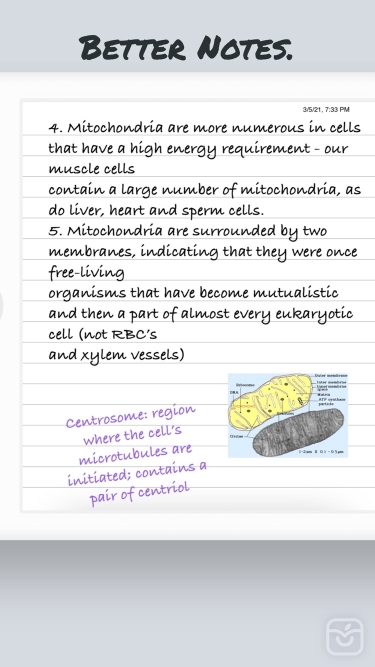 BETTER NOTES.
3/5/21, 7:33 PM
4. Mitochondria are more numerous in cells
that have a high energy requirement - our
muscle cells
contain a large number of mitochondria, as
do liver, heart and sperm cells.
5. Mitochondria are surrounded by two
membranes, indicating that they were once
free-living
organisms that have become mutualistic
and then a part of almost every eukaryotic
cell (not RBC's
and xylem vessels)
Centrosome: region
where the cell's
microtubules are
initiated; contains a
pair of centriol
Outer membrane
Inner membrane
Ribosome
DNA
Matrix
ATP synthase
particle
Cristae